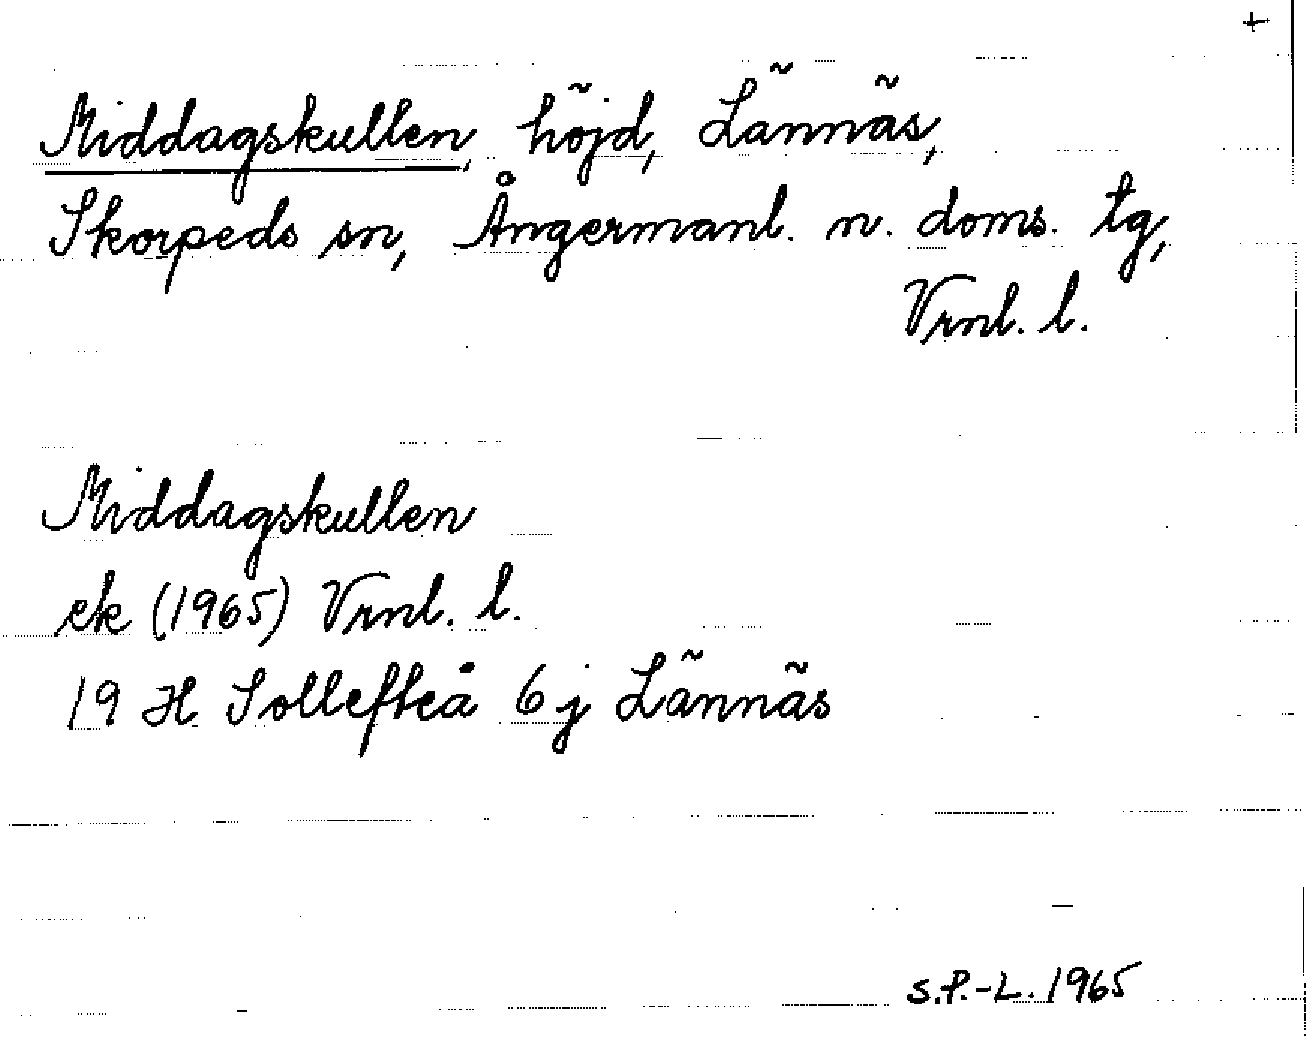 +
Middagskullen, höjd, Lännäs,
Skorpeds sn, Ångermanl. n. doms. tg,
Vrnl. l.
Middagskullen
ek (1965) Vrnl. l.
19 H Sollefteå 6 j Lännäs
S.P.-L. 1965